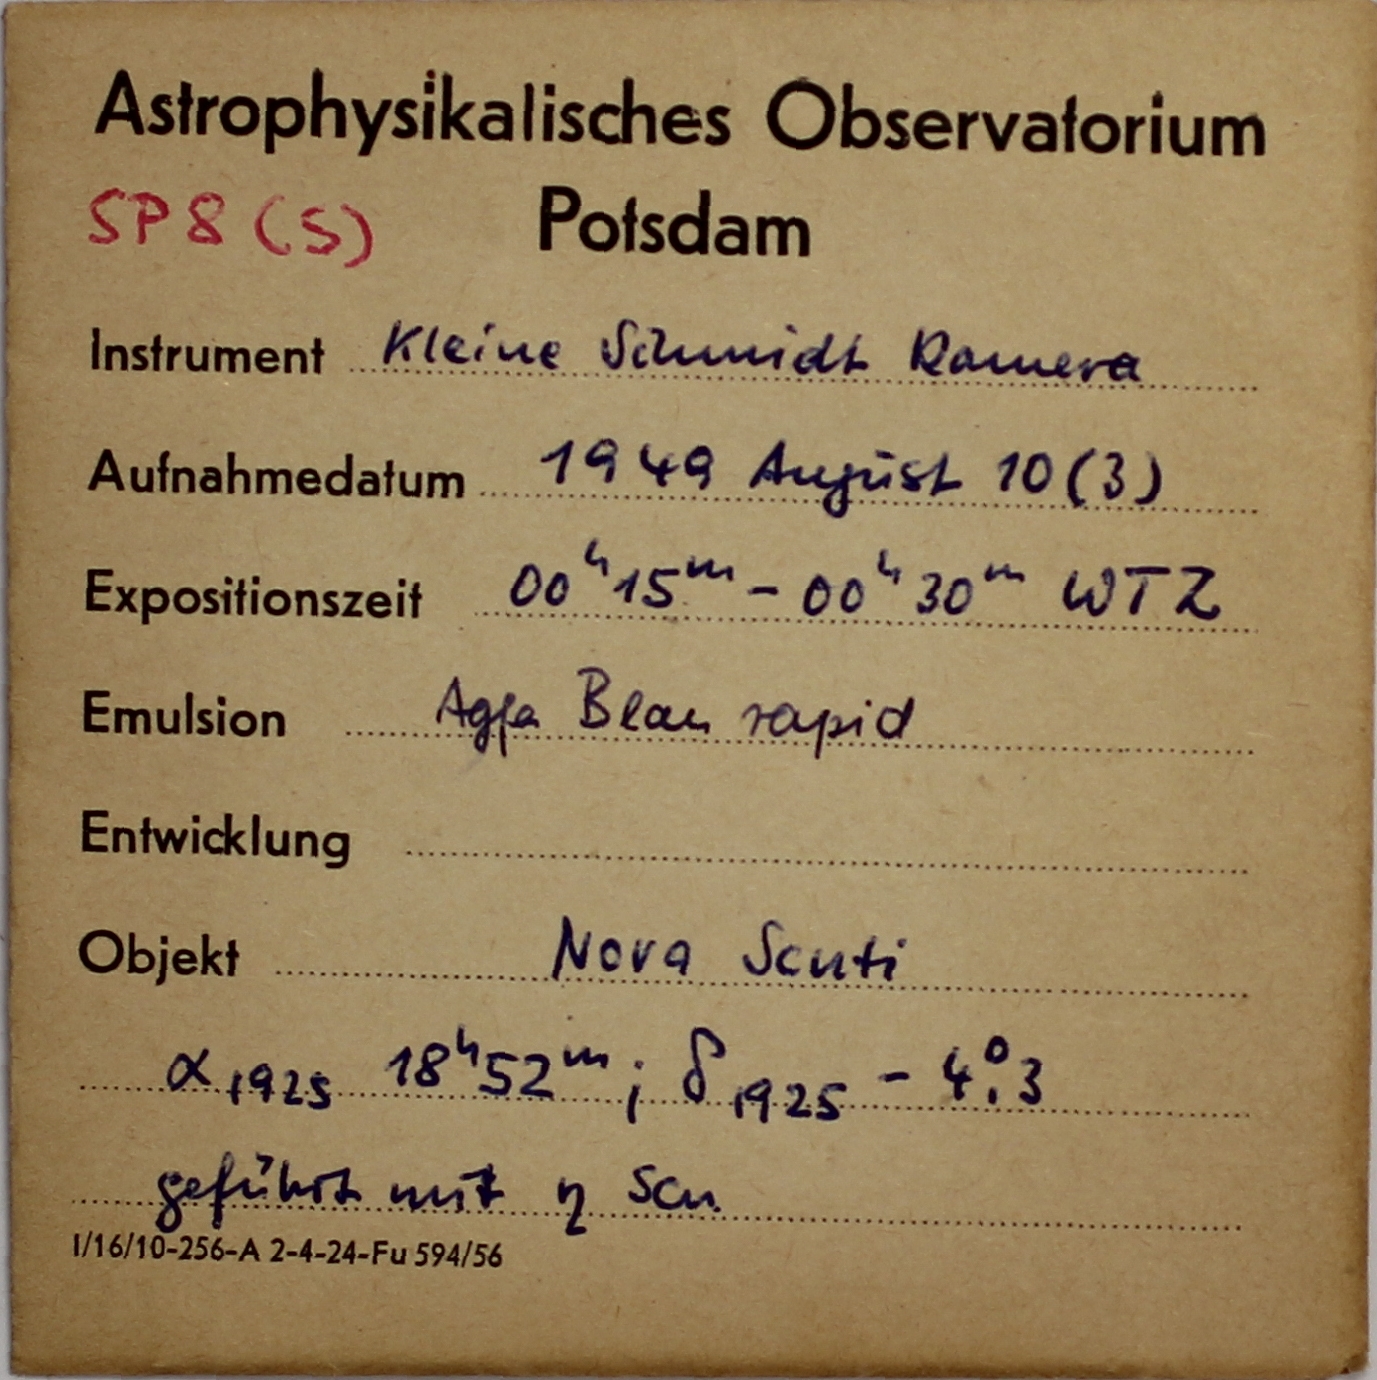 Astrophysikalisches Observatorium
SP8 (S) Potsdam
Instrument Kleine Schmidt Kamera
Aufnahmedatum 1949 August 10 (3)
Expositionszeit 00ʰ15ᵐ - 00ʰ30ᵐ WTZ
Emulsion Agfa Blau rapid
Entwicklung
Objekt Nova Scuti
α₁₉₂₅ 18ʰ52ᵐ; δ₁₉₂₅ - 4°.3
geführt mit η Scu.
I/16/10-256-A 2-4-24-Fu 594/56